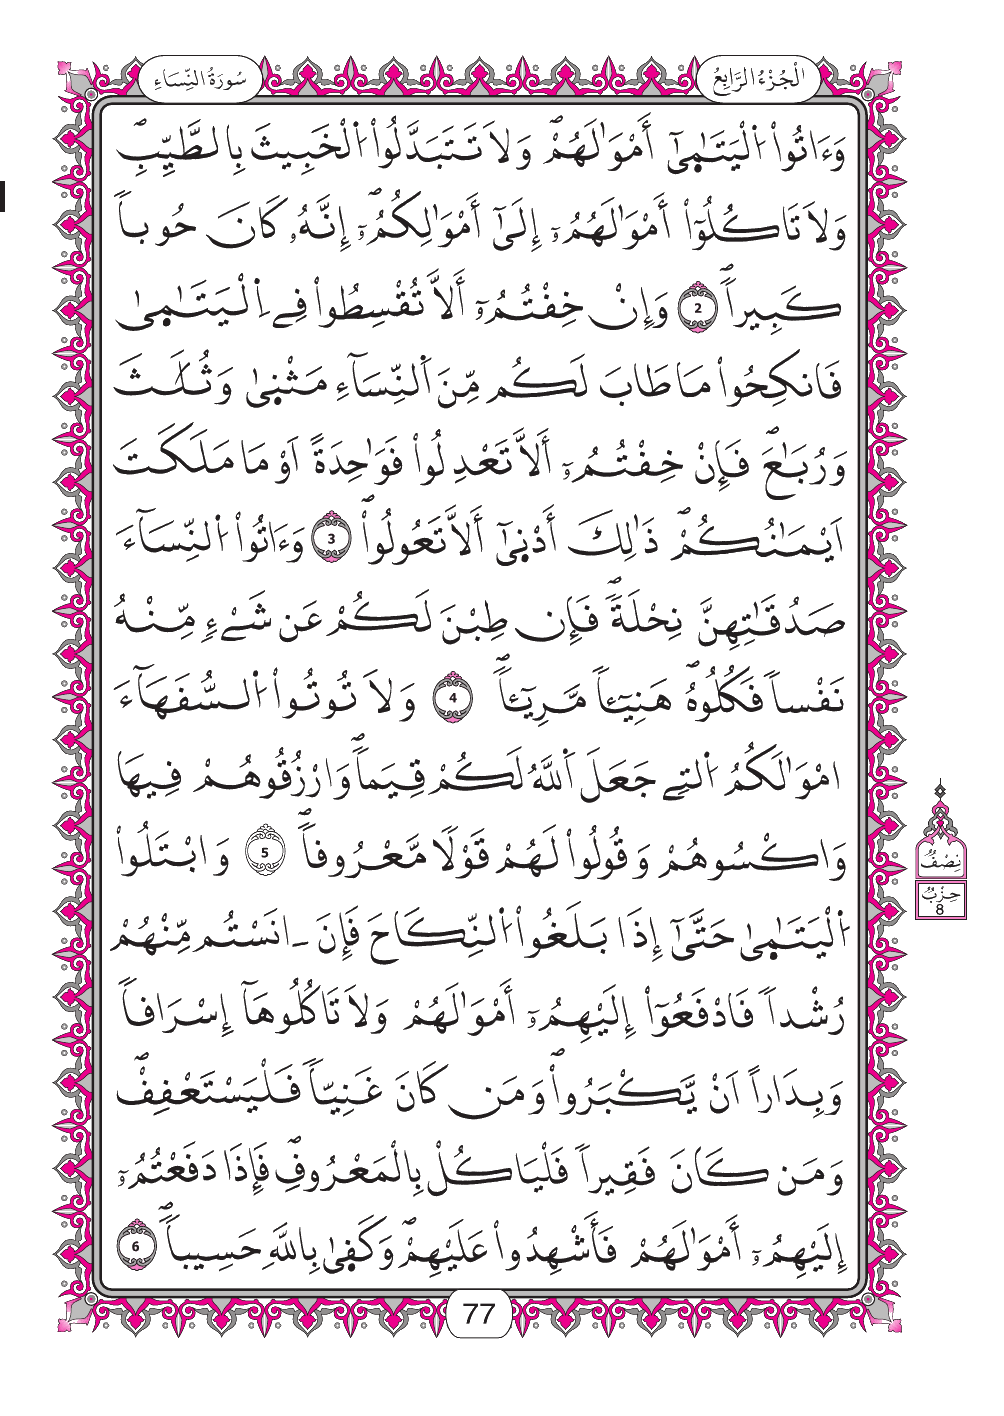 الْجُزْءُ الرَّابِعُ
سُورَةُ النِّسَاءِ
وَءَاتُواْ اُ۬لْيَتَٰم۪ىٰٓ أَمْوَٰلَهُمْۖ وَلَا تَتَبَدَّلُواْ اُ۬لْخَبِيثَ بِالطَّيِّبِۖ
وَلَا تَاكُلُوٓاْ أَمْوَٰلَهُمُۥٓ إِلَىٰٓ أَمْوَٰلِكُمُۥٓۖ إِنَّهُۥ كَانَ حُوباٗ
كَبِيراٗۖ 2 وَإِنْ خِفْتُمُۥٓ أَلَّا تُقْسِطُواْ فِے اِ۬لْيَتَٰم۪ىٰ
فَانكِحُواْ مَا طَابَ لَكُم مِّنَ اَ۬لنِّسَآءِ مَثْن۪ىٰ وَثُلَٰثَ
وَرُبَٰعَۖ فَإِنْ خِفْتُمُۥٓ أَلَّا تَعْدِلُواْ فَوَٰحِدَةً اَوْ مَا مَلَكَتَ
اَيْمَٰنُكُمْۖ ذَٰلِكَ أَدْن۪ىٰٓ أَلَّا تَعُولُواْۖ 3 وَءَاتُواْ اُ۬لنِّسَآءَ
صَدُقَٰتِهِنَّ نِحْلَةٗۖ فَإِن طِبْنَ لَكُمْ عَن شَےْءٖ مِّنْهُ
نَفْساٗ فَكُلُوهُۖ هَنِيٓـٔاٗ مَّرِيٓـٔاٗۖ 4 وَلَا تُوتُواْ اُ۬لسُّفَهَآءَ
امْوَٰلَكُمُ اُ۬لتِے جَعَلَ اَ۬للَّهُ لَكُمْ قِيَماٗۖ وَارْزُقُوهُمْ فِيهَا
وَاكْسُوهُمْ وَقُولُواْ لَهُمْ قَوْلٗا مَّعْرُوفاٗۖ 5 وَابْتَلُواْ
اُ۬لْيَتَٰم۪ىٰ حَتَّىٰٓ إِذَا بَلَغُواْ اُ۬لنِّكَاحَ فَإِنَ ـ‍انَسْتُم مِّنْهُمْ
رُشْداٗ فَادْفَعُوٓاْ إِلَيْهِمُۥٓ أَمْوَٰلَهُمْ وَلَا تَاكُلُوهَآ إِسْرَافاٗ
وَبِدَاراً اَنْ يَّكْبَرُواْۖ وَمَن كَانَ غَنِيّاٗ فَلْيَسْتَعْفِفْۖ
وَمَن كَانَ فَقِيراٗ فَلْيَاكُلْ بِالْمَعْرُوفِۖ فَإِذَا دَفَعْتُمُۥٓ
إِلَيْهِمُۥٓ أَمْوَٰلَهُمْ فَأَشْهِدُواْ عَلَيْهِمْۖ وَكَف۪ىٰ بِاللَّهِ حَسِيباٗۖ 6
نِصْفُ
حِزْبُ
8
77